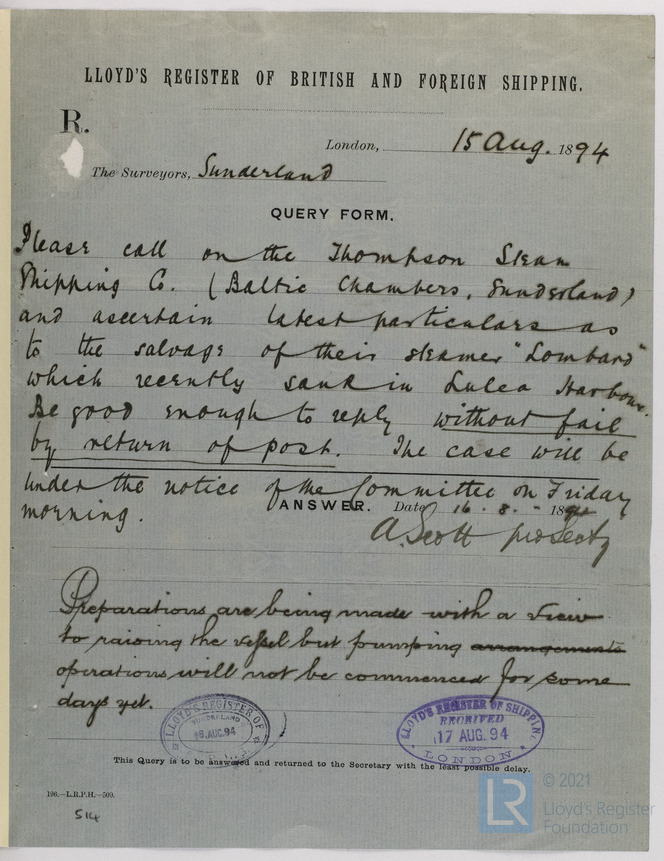 LLOYD'S REGISTER OF BRITISH AND FOREIGN SHIPPING.
R.
London, 15 Aug. 1894
The Surveyors, Sunderland
QUERY FORM.
Please call on the Thompson Steam
Shipping Co. (Baltic Chambers, Sunderland)
and ascertain latest particulars as
to the salvage of their steamer "Lombard"
which recently sank in Lulea Harbour.
Be good enough to reply without fail
by return of post. The case will be
under the notice of the Committee on Friday
morning.
ANSWER. Date 16.8.- 1894
A. Scott pro Secty
Preparations are being made with a view
to raising the vessel but pumping arrangements
operations will not be commenced for some
days yet.
LLOYD'S REGISTER OF
SUNDERLAND
16 AUG. 94
LLOYD'S REGISTER OF SHIPPIN
RECEIVED
17 AUG. 94
LONDON
This Query is to be answered and returned to the Secretary with the least possible delay.
196.—L.R.P.H.—509.
514
LR
© 2021
Lloyd's Register
Foundation